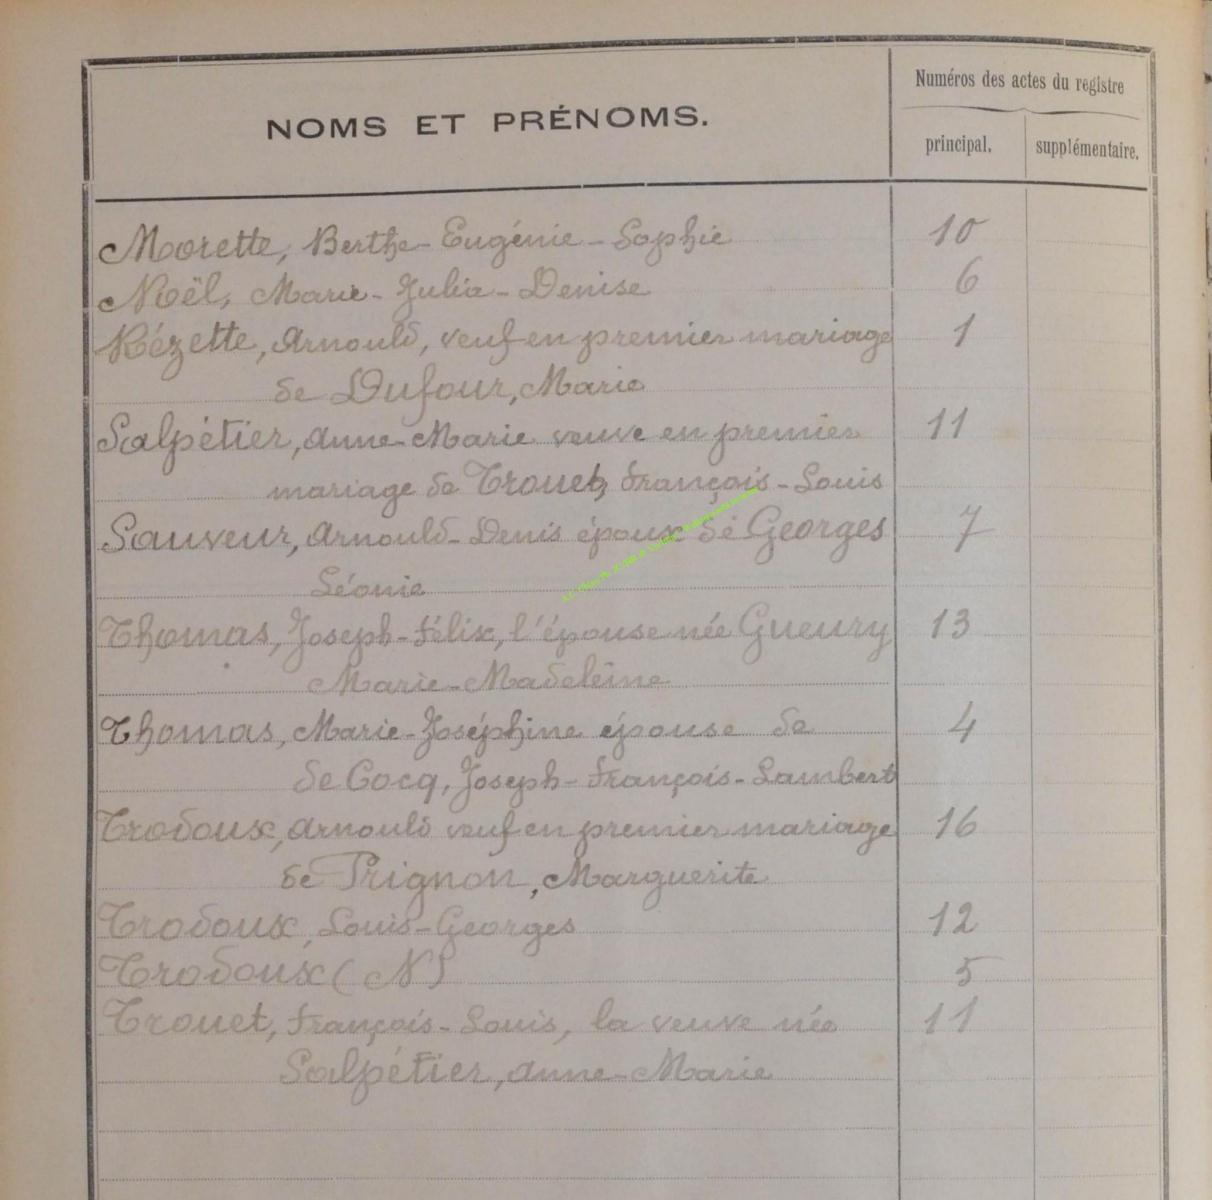 NOMS ET PRÉNOMS.
Numéros des actes du registre
principal.
supplémentaire.
Morette, Berthe-Eugénie-Sophie 10
Noël, Marie-Julia-Denise 6
Rézette, Arnould, veuf en premier mariage 1
de Dufour, Marie
Salpétier, Anne-Marie veuve en premier 11
mariage de Trouet, François-Louis
Sauveur, Arnould-Denis époux de Georges 7
Léonie
Thomas, Joseph-Félix, l'épouse née Gueury 13
Marie-Madeleine
Thomas, Marie-Joséphine épouse de 4
de Cocq, Joseph-François-Lambert
Trodoux, Arnould veuf en premier mariage 16
de Prignon, Marguerite
Trodoux, Louis-Georges 12
Trodoux (N) 5
Trouet, François-Louis, la veuve née 11
Salpétier, Anne-Marie